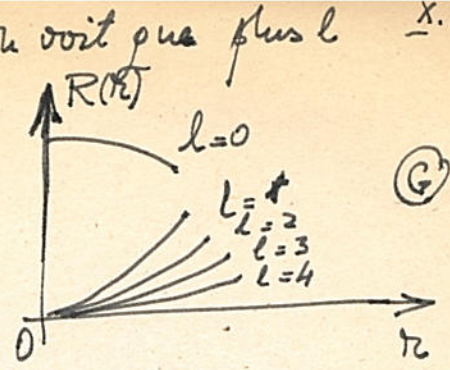 voit que plus l x.
R(r)
l=0
l=1
G
l=2
l=3
l=4
0 r